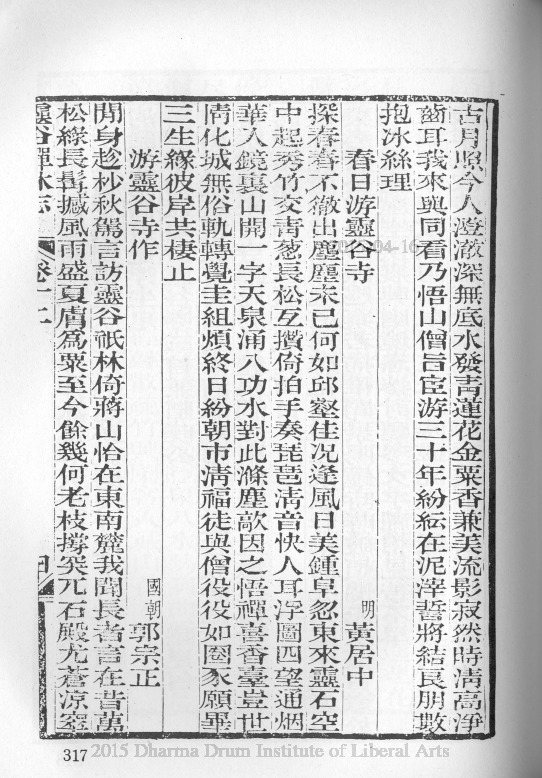 古月照今人澄澈深無底水發青蓮花金粟香兼美流影寂然時清高淨
齒耳我來興同看乃悟山僧旨宦游三十年紛紜在泥滓誓將結良朋數
抱冰絲理
春日游靈谷寺 明 黃居中
探春春不徹出塵塵未已何如邱壑佳况逢風日美鍾阜忽東來靈石空
中起秀竹交青葱長松互攢倚拍手奏琵琶清音快人耳浮圖四望通烟
華入鏡裏山開一字天泉涌八功水對此滌塵歊因之悟禪喜香臺豈世
隔化城無俗軌轉覺圭組煩終日紛朝市清福徒與僧役役如圂豕願畢
三生緣彼岸共棲止
游靈谷寺作 國朝 郭宗正
閒身趁杪秋駕言訪靈谷祇林倚蔣山恰在東南麓我聞長者言在昔萬
松綠長髯撼風雨盛夏膚爲粟至今餘幾何老枝撐突兀石殿尤蒼凉窣
靈谷禪林志 卷十二 四
317
2015 Dharma Drum Institute of Liberal Arts